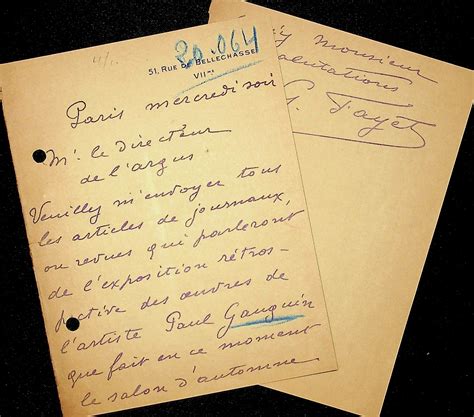 20.064
51, RUE DE BELLECHASSE
VIIme
Paris mercredi soir
Mr le Directeur
de l'argus
Veuillez m'envoyer tous
les articles de journaux,
ou revues qui parleront
de l'exposition rétros-
pective des œuvres de
l'artiste Paul Gauguin
que fait en ce moment
le salon d'automne
Monsieur
salutations
G. Fayet